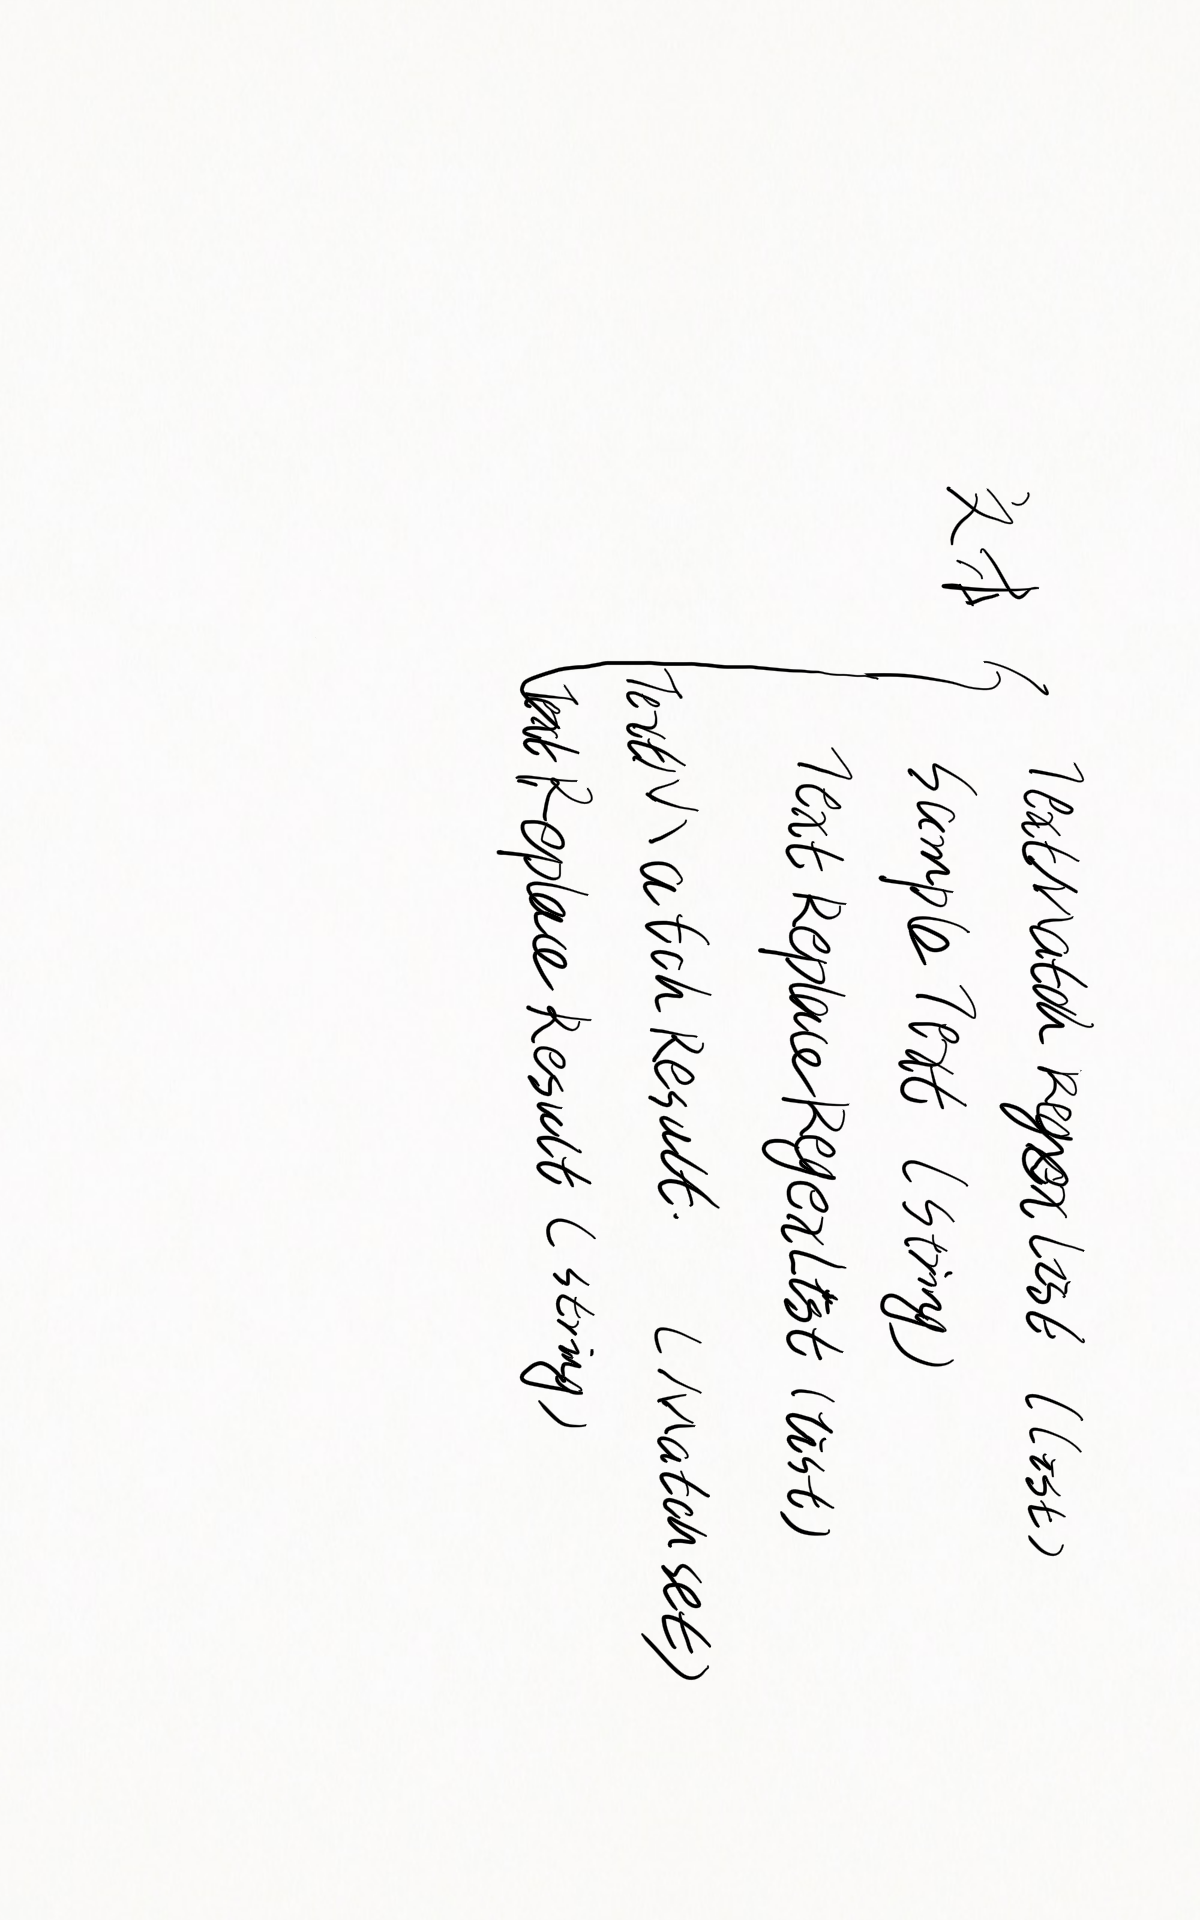 文本
TextMatch Regex List (List)
Sample Text (String)
Text Replace Regex List (List)
Text Match Result. (Match set)
Text Replace Result (string)